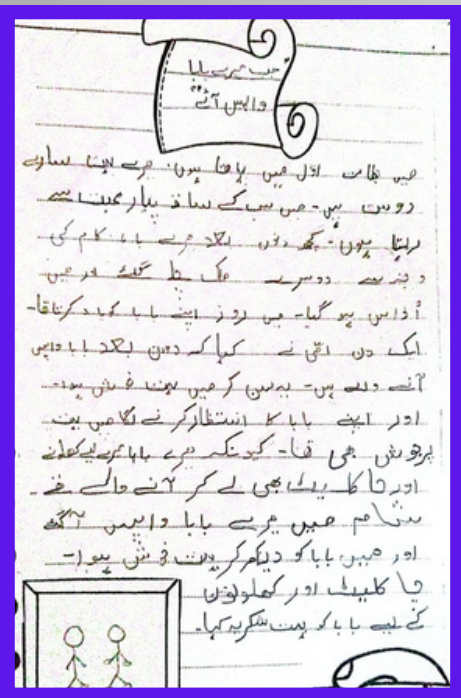 "جب میرے بابا
واپس آئے"
میں جماعت اوّل میں پڑھتا ہوں۔ میرے بہت سارے
دوست ہیں۔ میں سب کے ساتھ پیار محبت سے
رہتا ہوں۔ کچھ دنوں بعد میرے بابا کام کی
وجہ سے دوسرے ملک چلے گئے اور میں
اُداس ہو گیا۔ میں روز اپنے بابا کو یاد کرتا تھا۔
ایک دن امّی نے کہا کہ دو دن بعد بابا واپس
آنے والے ہیں۔ یہ سن کر میں بہت خوش ہوا۔
اور اپنے بابا کا انتظار کرنے لگا میں بہت
پرجوش بھی تھا۔ کیونکہ میرے بابا میرے لیے کھلونے
اور چاکلیٹ بھی لے کر آنے والے تھے۔
شام میں میرے بابا واپس آگئے
اور میں بابا کو دیکھ کر بہت خوش ہوا۔
چاکلیٹ اور کھلونوں
کے لیے بابا کو بہت شکریہ کہا۔